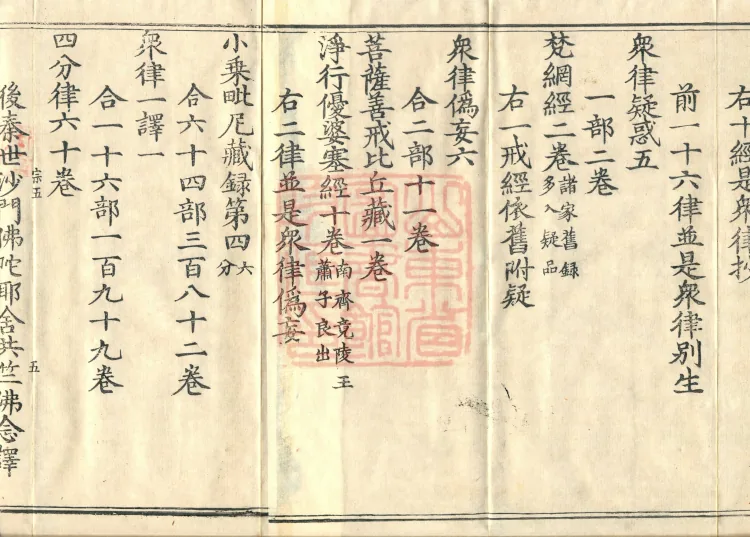 右十經是衆律抄
前一十六律並是衆律別生
衆律疑惑五
一部二卷
梵網經二卷諸家舊録多入疑品
右一戒經依舊附疑
衆律偽妄六
合二部十一卷
菩薩善戒比丘藏一卷
淨行優婆塞經十卷南齊竟陵王蕭子良出
右二律並是衆律偽妄
小乗毗尼藏録第四六分
合六十四部三百八十二卷
衆律一譯一
合一十六部一百九十九卷
四分律六十卷
宗五
五
後秦世沙門佛陀耶舍共竺佛念譯
山東省圖書館